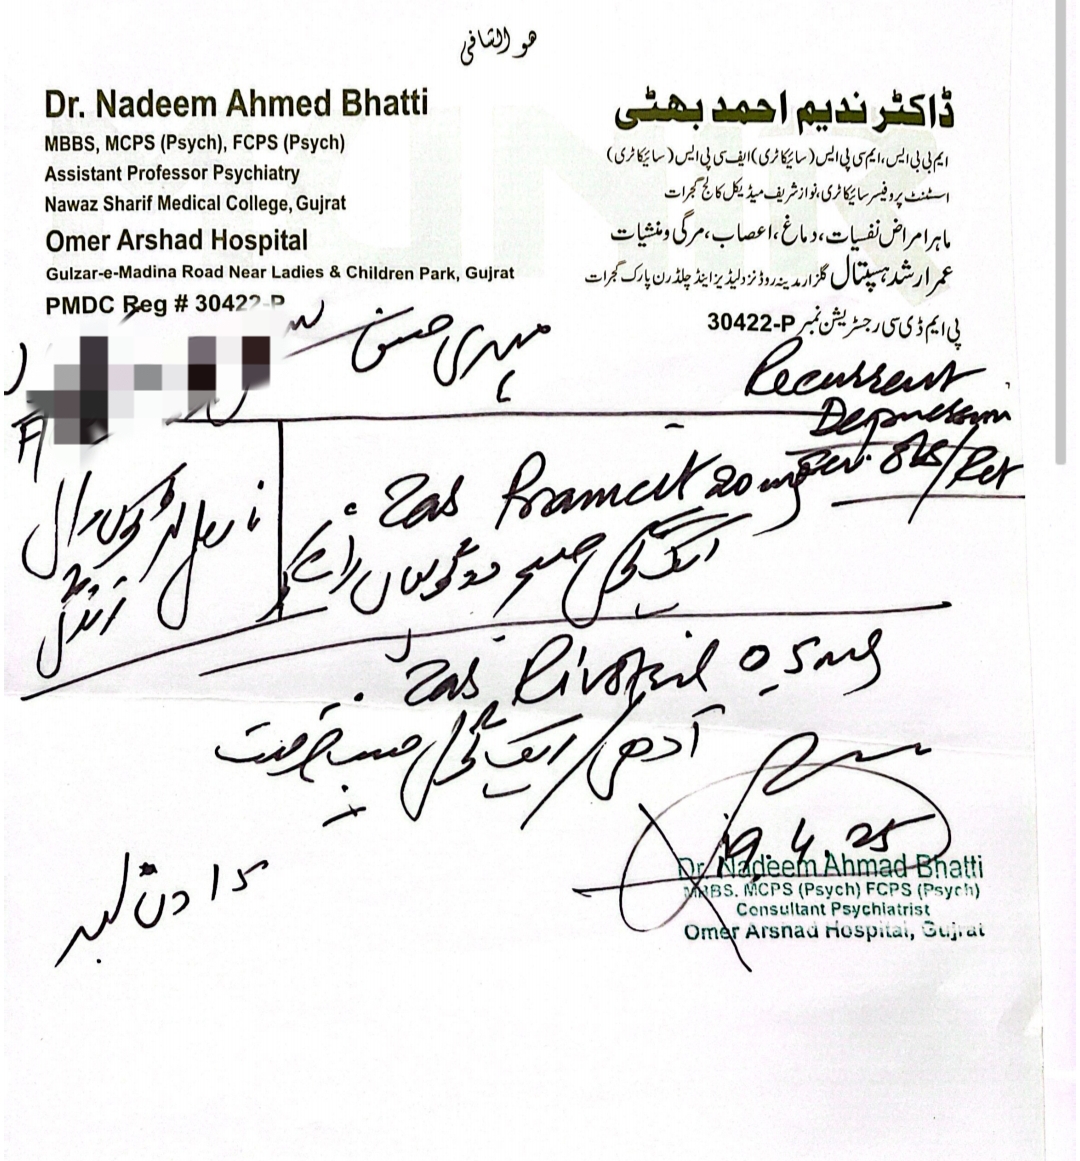 هو الشافی
Dr. Nadeem Ahmed Bhatti
MBBS, MCPS (Psych), FCPS (Psych)
Assistant Professor Psychiatry
Nawaz Sharif Medical College, Gujrat
Omer Arshad Hospital
Gulzar-e-Madina Road Near Ladies & Children Park, Gujrat
PMDC Reg # 30422-P
ڈاکٹر ندیم احمد بھٹی
ایم بی بی ایس، ایم سی پی ایس (سائیکاٹری) ایف سی پی ایس (سائیکاٹری)
اسسٹنٹ پروفیسر سائیکاٹری، نواز شریف میڈیکل کالج گجرات
ماہر امراض نفسیات، دماغ، اعصاب، مرگی و منشیات
عمر ارشد ہسپتال گلزار مدینہ روڈ نزد لیڈیز اینڈ چلڈرن پارک گجرات
پی ایم ڈی سی رجسٹریشن نمبر 30422-P
مہدی حسن
Recurrent
Depression
Pramcit 20 mg
ایک گولی صبح
Rivotril 0.5mg
آدھی / ایک گولی حسب ضرورت
19.4.25
Dr. Nadeem Ahmad Bhatti
MBBS. MCPS (Psych) FCPS (Psych)
Consultant Psychiatrist
Omer Arshad Hospital, Gujrat
۱۵ دن